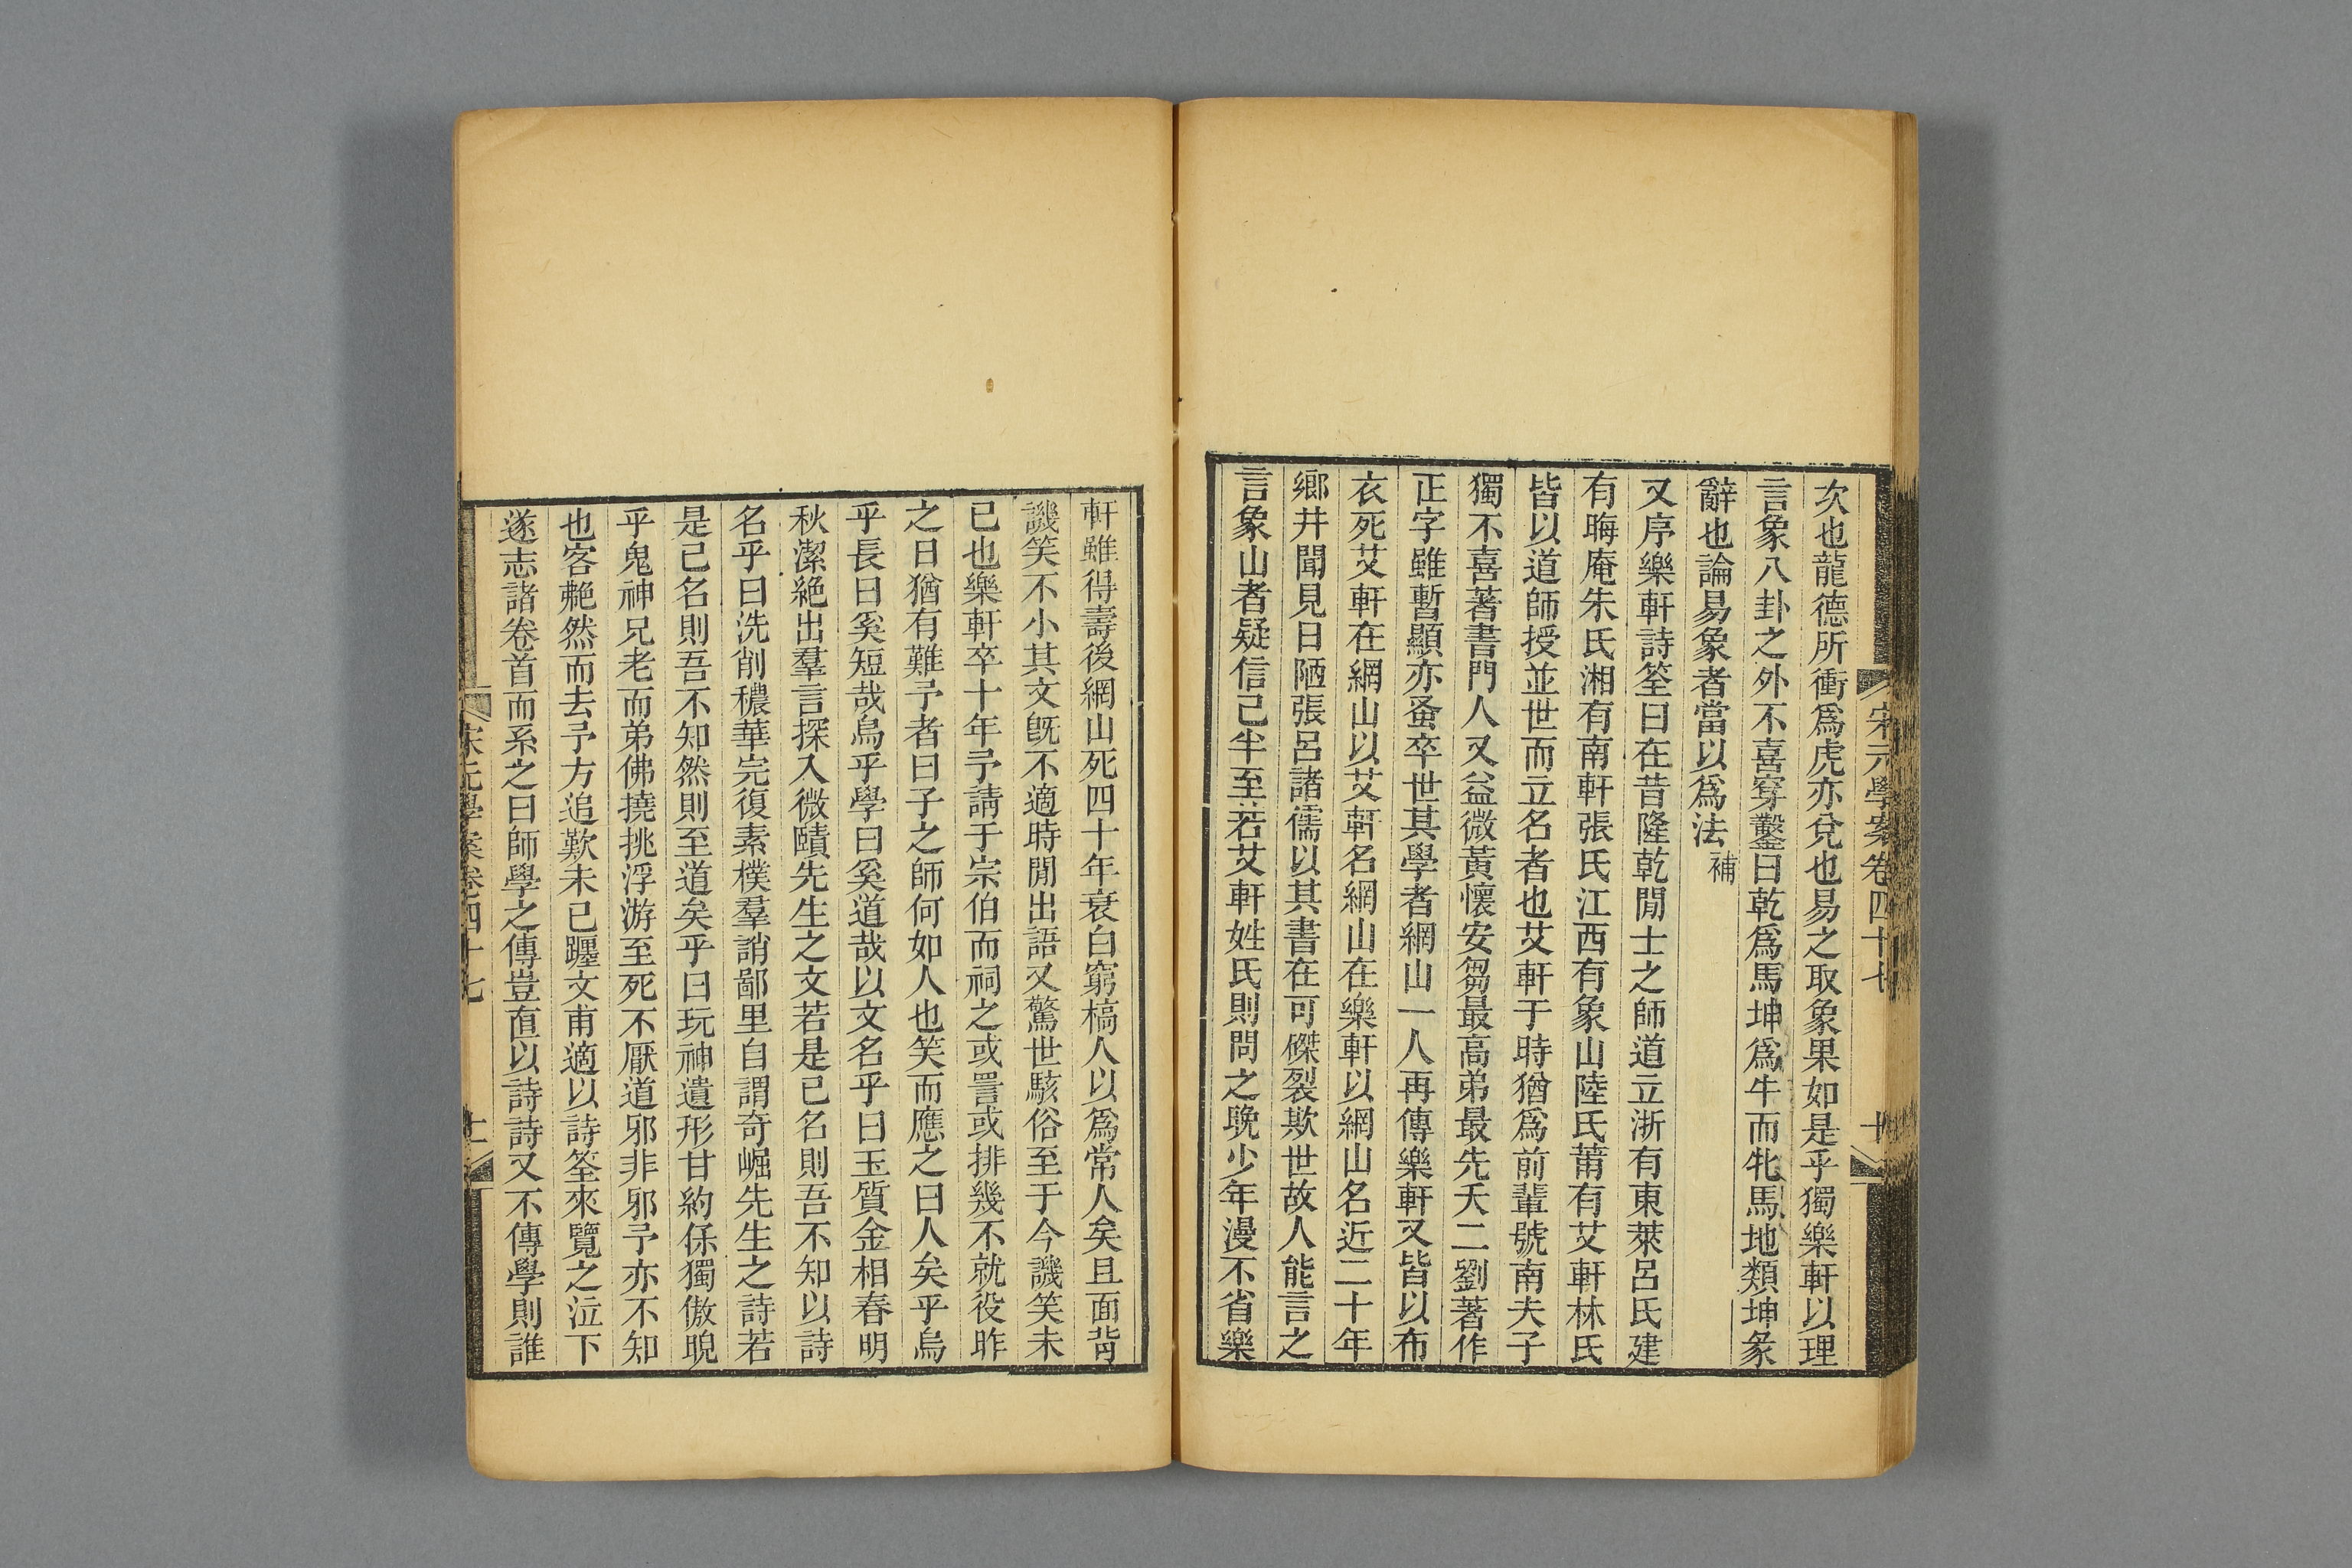 宋元學案卷四十七
十
次也龍德所衝爲虎亦兌也易之取象果如是乎獨樂軒以理
言象八卦之外不喜穿鑿曰乾爲馬坤爲牛而牝馬地類坤彖
辭也論易象者當以爲法補
又序樂軒詩筌曰在昔隆乾閒士之師道立浙有東萊呂氏建
有晦庵朱氏湘有南軒張氏江西有象山陸氏莆有艾軒林氏
皆以道師授並世而立名者也艾軒于時猶爲前輩號南夫子
獨不喜著書門人又益微黃懷安芻最高弟最先夭二劉著作
正字雖暫顯亦蚤卒世其學者網山一人再傳樂軒又皆以布
衣死艾軒在網山以艾軒名網山在樂軒以網山名近二十年
鄉井聞見日陋張呂諸儒以其書在可磔裂欺世故人能言之
言象山者疑信已半至若艾軒姓氏則問之晚少年漫不省樂
軒雖得壽後網山死四十年衰白窮槁人以爲常人矣且面背
譏笑不小其文旣不適時閒出語又驚世駭俗至于今譏笑未
已也樂軒卒十年予請于宗伯而祠之或詈或排幾不就役昨
之日猶有難予者曰子之師何如人也笑而應之曰人矣乎烏
乎長曰奚短哉烏乎學曰奚道哉以文名乎曰玉質金相春明
秋潔絶出羣言探入微賾先生之文若是已名則吾不知以詩
名乎曰洗削穠華完復素樸羣誚鄙里自謂奇崛先生之詩若
是已名則吾不知然則至道矣乎曰玩神遺形甘約保獨傲睨
乎鬼神兄老而弟佛撓挑浮游至死不厭道邪非邪予亦不知
也客艴然而去予方追歎未已躔文甫適以詩筌來覽之泣下
遂志諸卷首而系之曰師學之傳豈直以詩詩又不傳學則誰
宋元學案卷四十七